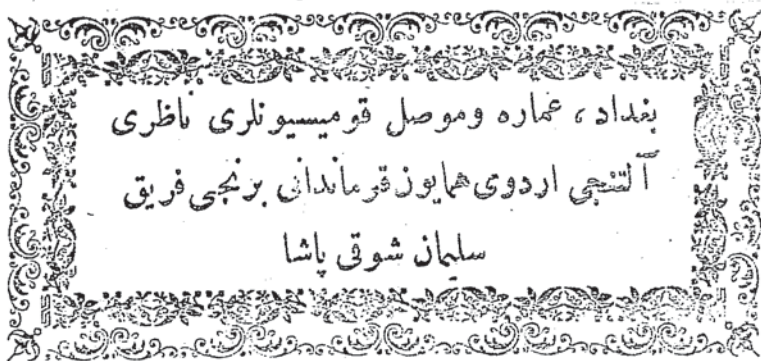 بغداد، عماره وموصل قومیسیونلری ناظری
آلتنجی اردوی همایون قوماندانی برنجی فریق
سلیمان شوقی پاشا